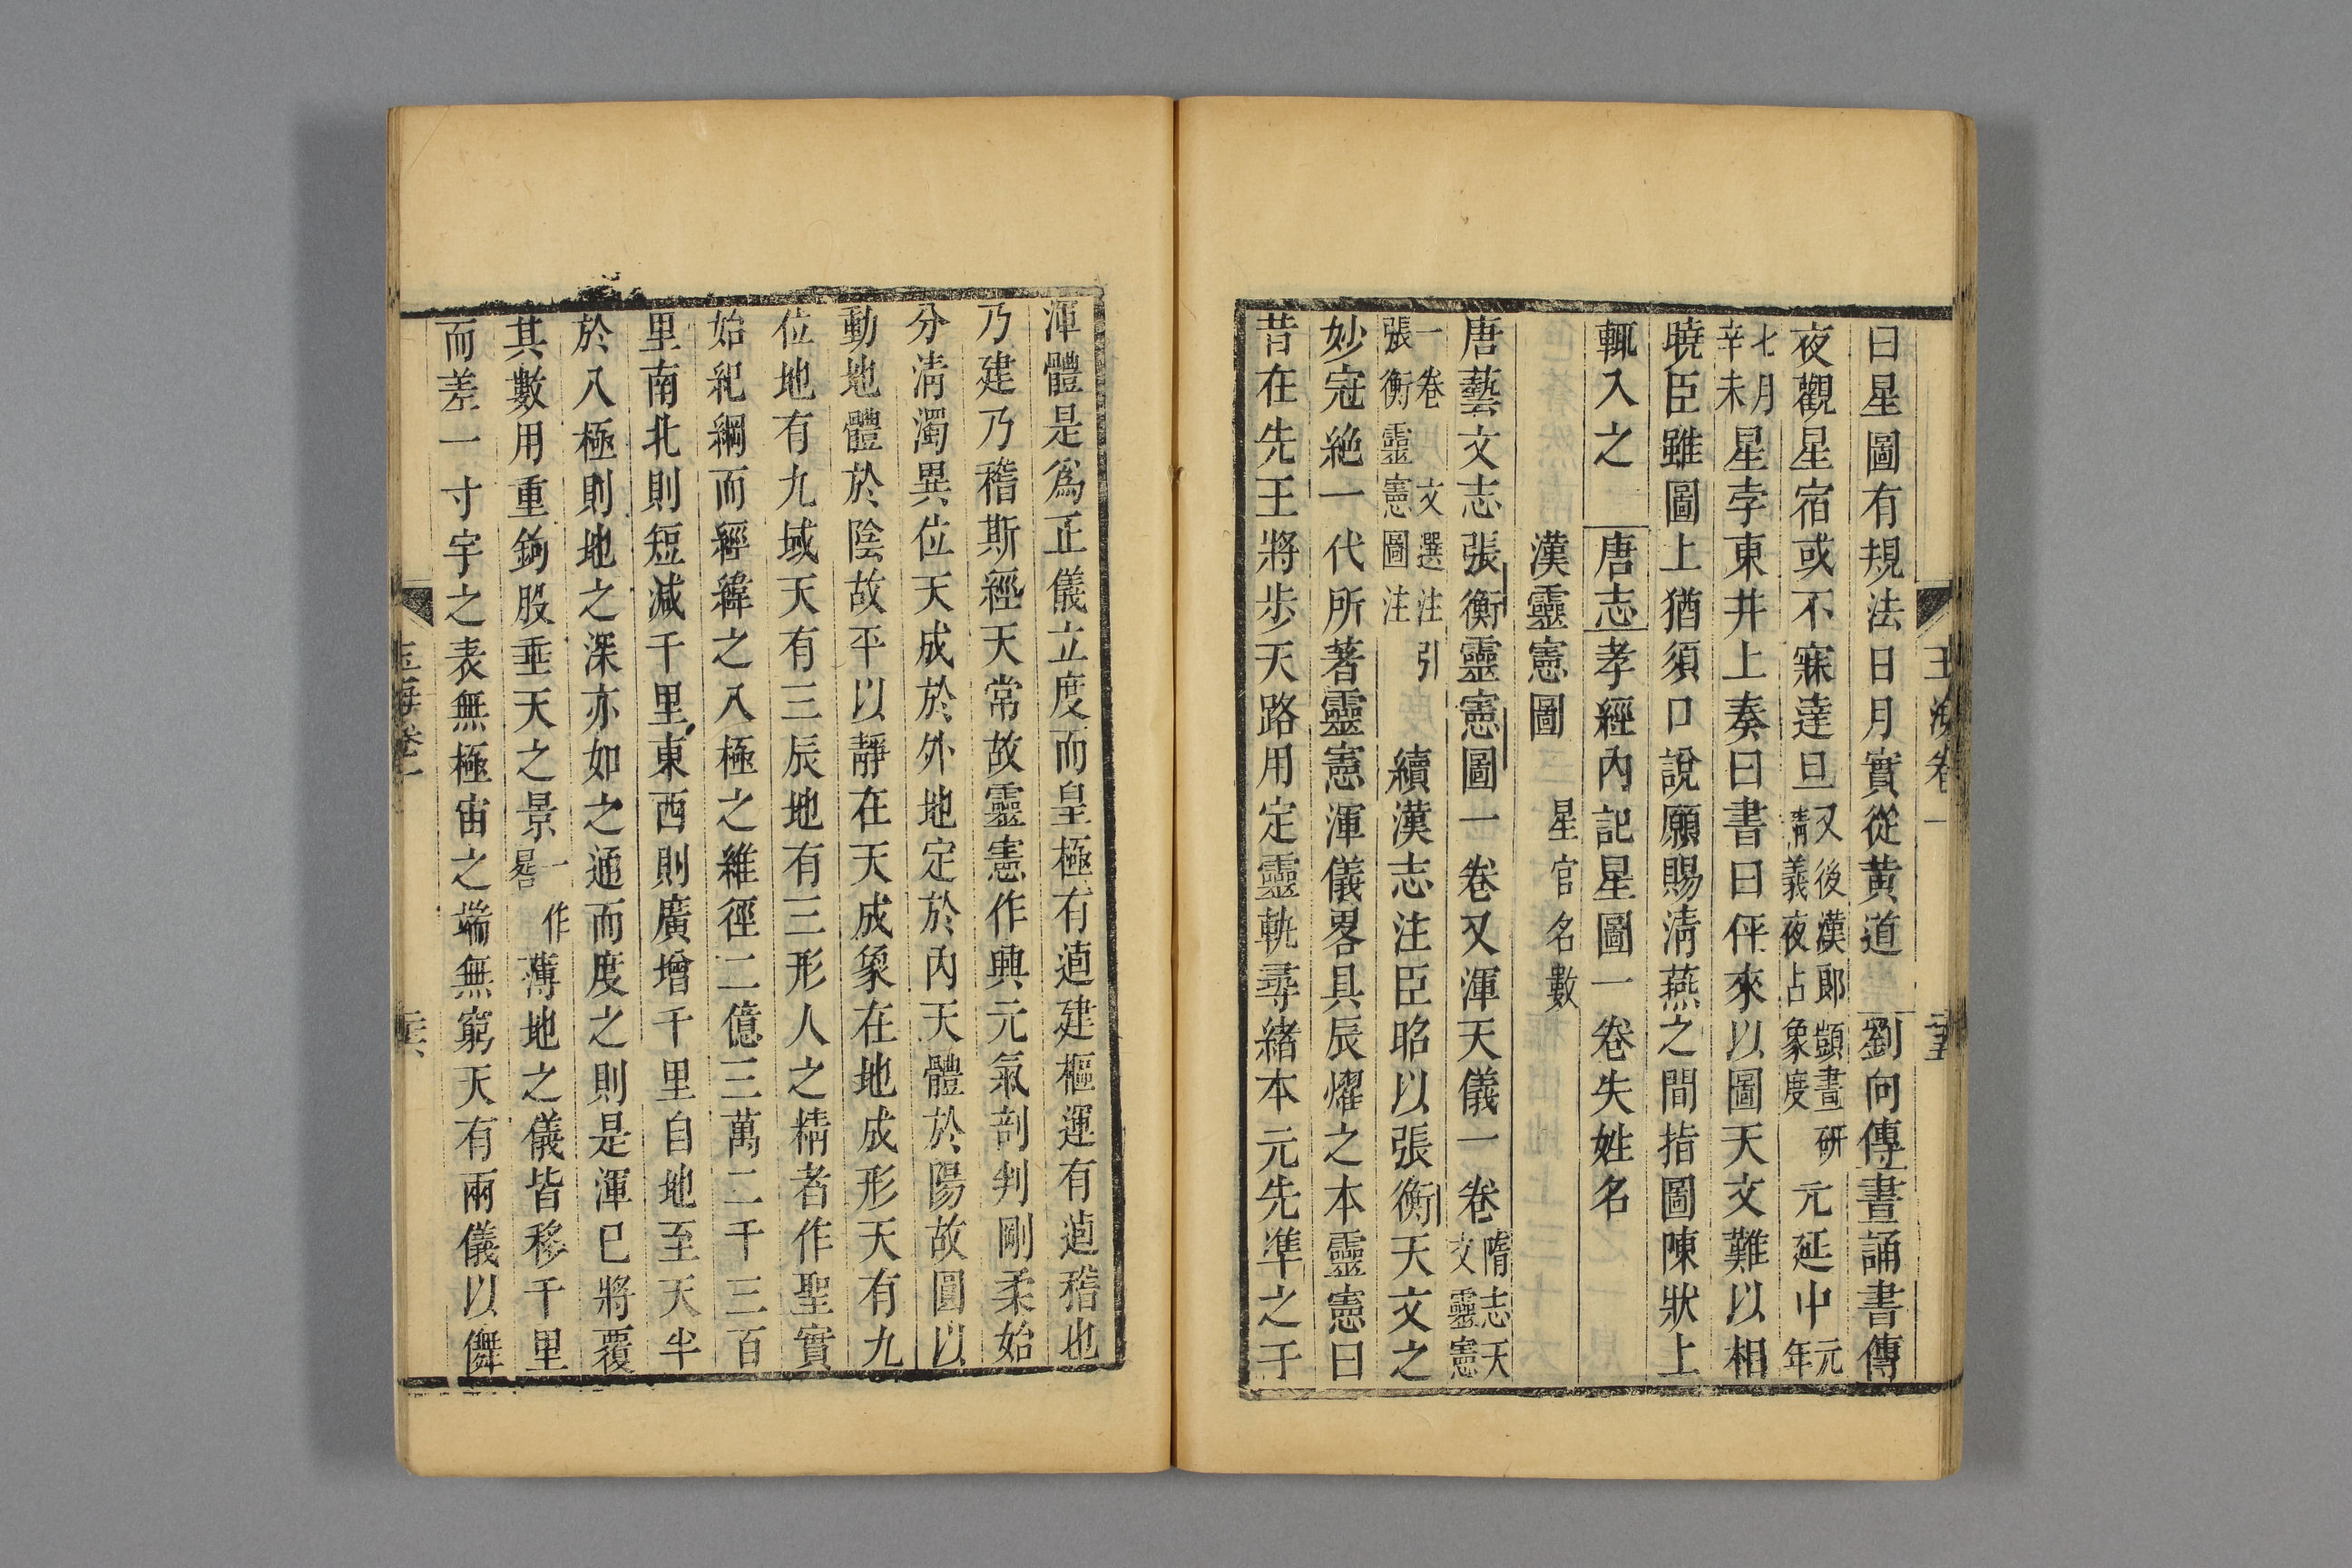 玉海卷一
曰星圖有規法日月實從黃道 劉向傳晝誦書傳
夜觀星宿或不寐達旦又後漢郎顗晝研精義夜占象度 元延中元年
七月辛未星孛東井上奏曰書曰伻來以圖天文難以相
曉臣雖圖上猶須口說願賜淸燕之間指圖陳狀上
輒入之 唐志孝經內記星圖一卷失姓名
漢靈憲圖 星官名數
唐藝文志張衡靈憲圖一卷又渾天儀一卷隋志天文靈憲
一卷 文選注引張衡靈憲圖注 續漢志注臣昭以張衡天文之
妙冠絶一代所著靈憲渾儀畧具辰燿之本靈憲曰
昔在先王將步天路用定靈軌尋緒本元先準之于
渾體是爲正儀立度而皇極有逌建樞運有逌稽也
乃建乃稽斯經天常故靈憲作興元氣剖判剛柔始
分淸濁異位天成於外地定於內天體於陽故圓以
動地體於陰故平以靜在天成象在地成形天有九
位地有九域天有三辰地有三形人之精者作聖實
始紀綱而經緯之八極之維徑二億三萬二千三百
里南北則短減千里東西則廣增千里自地至天半
於八極則地之深亦如之通而度之則是渾已將覆
其數用重鉤股垂天之景一作晷薄地之儀皆移千里
而差一寸宇之表無極宙之端無窮天有兩儀以儛
玉海卷一